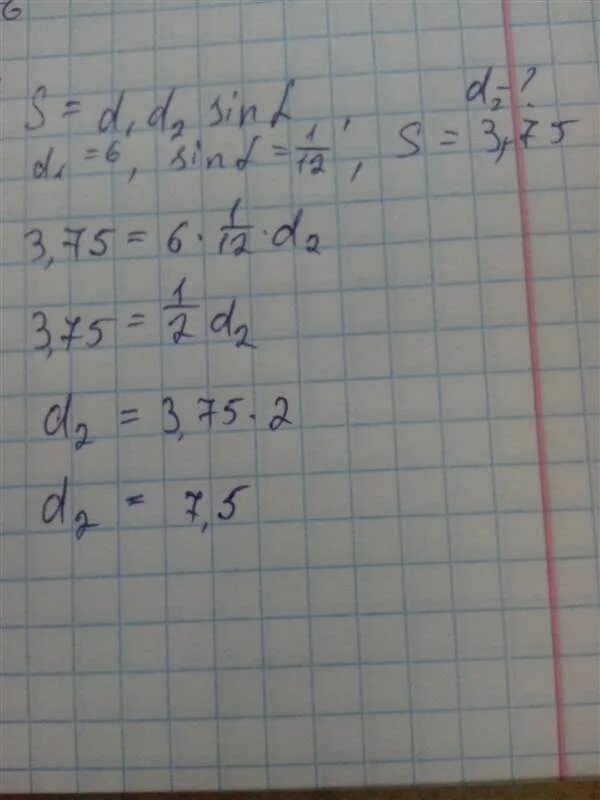 d₂ - ?
S = d₁ d₂ sin α,
d₁ = 6, sin α = 1/12, S = 3,75
3,75 = 6 · 1/12 · d₂
3,75 = 1/2 d₂
d₂ = 3,75 · 2
d₂ = 7,5